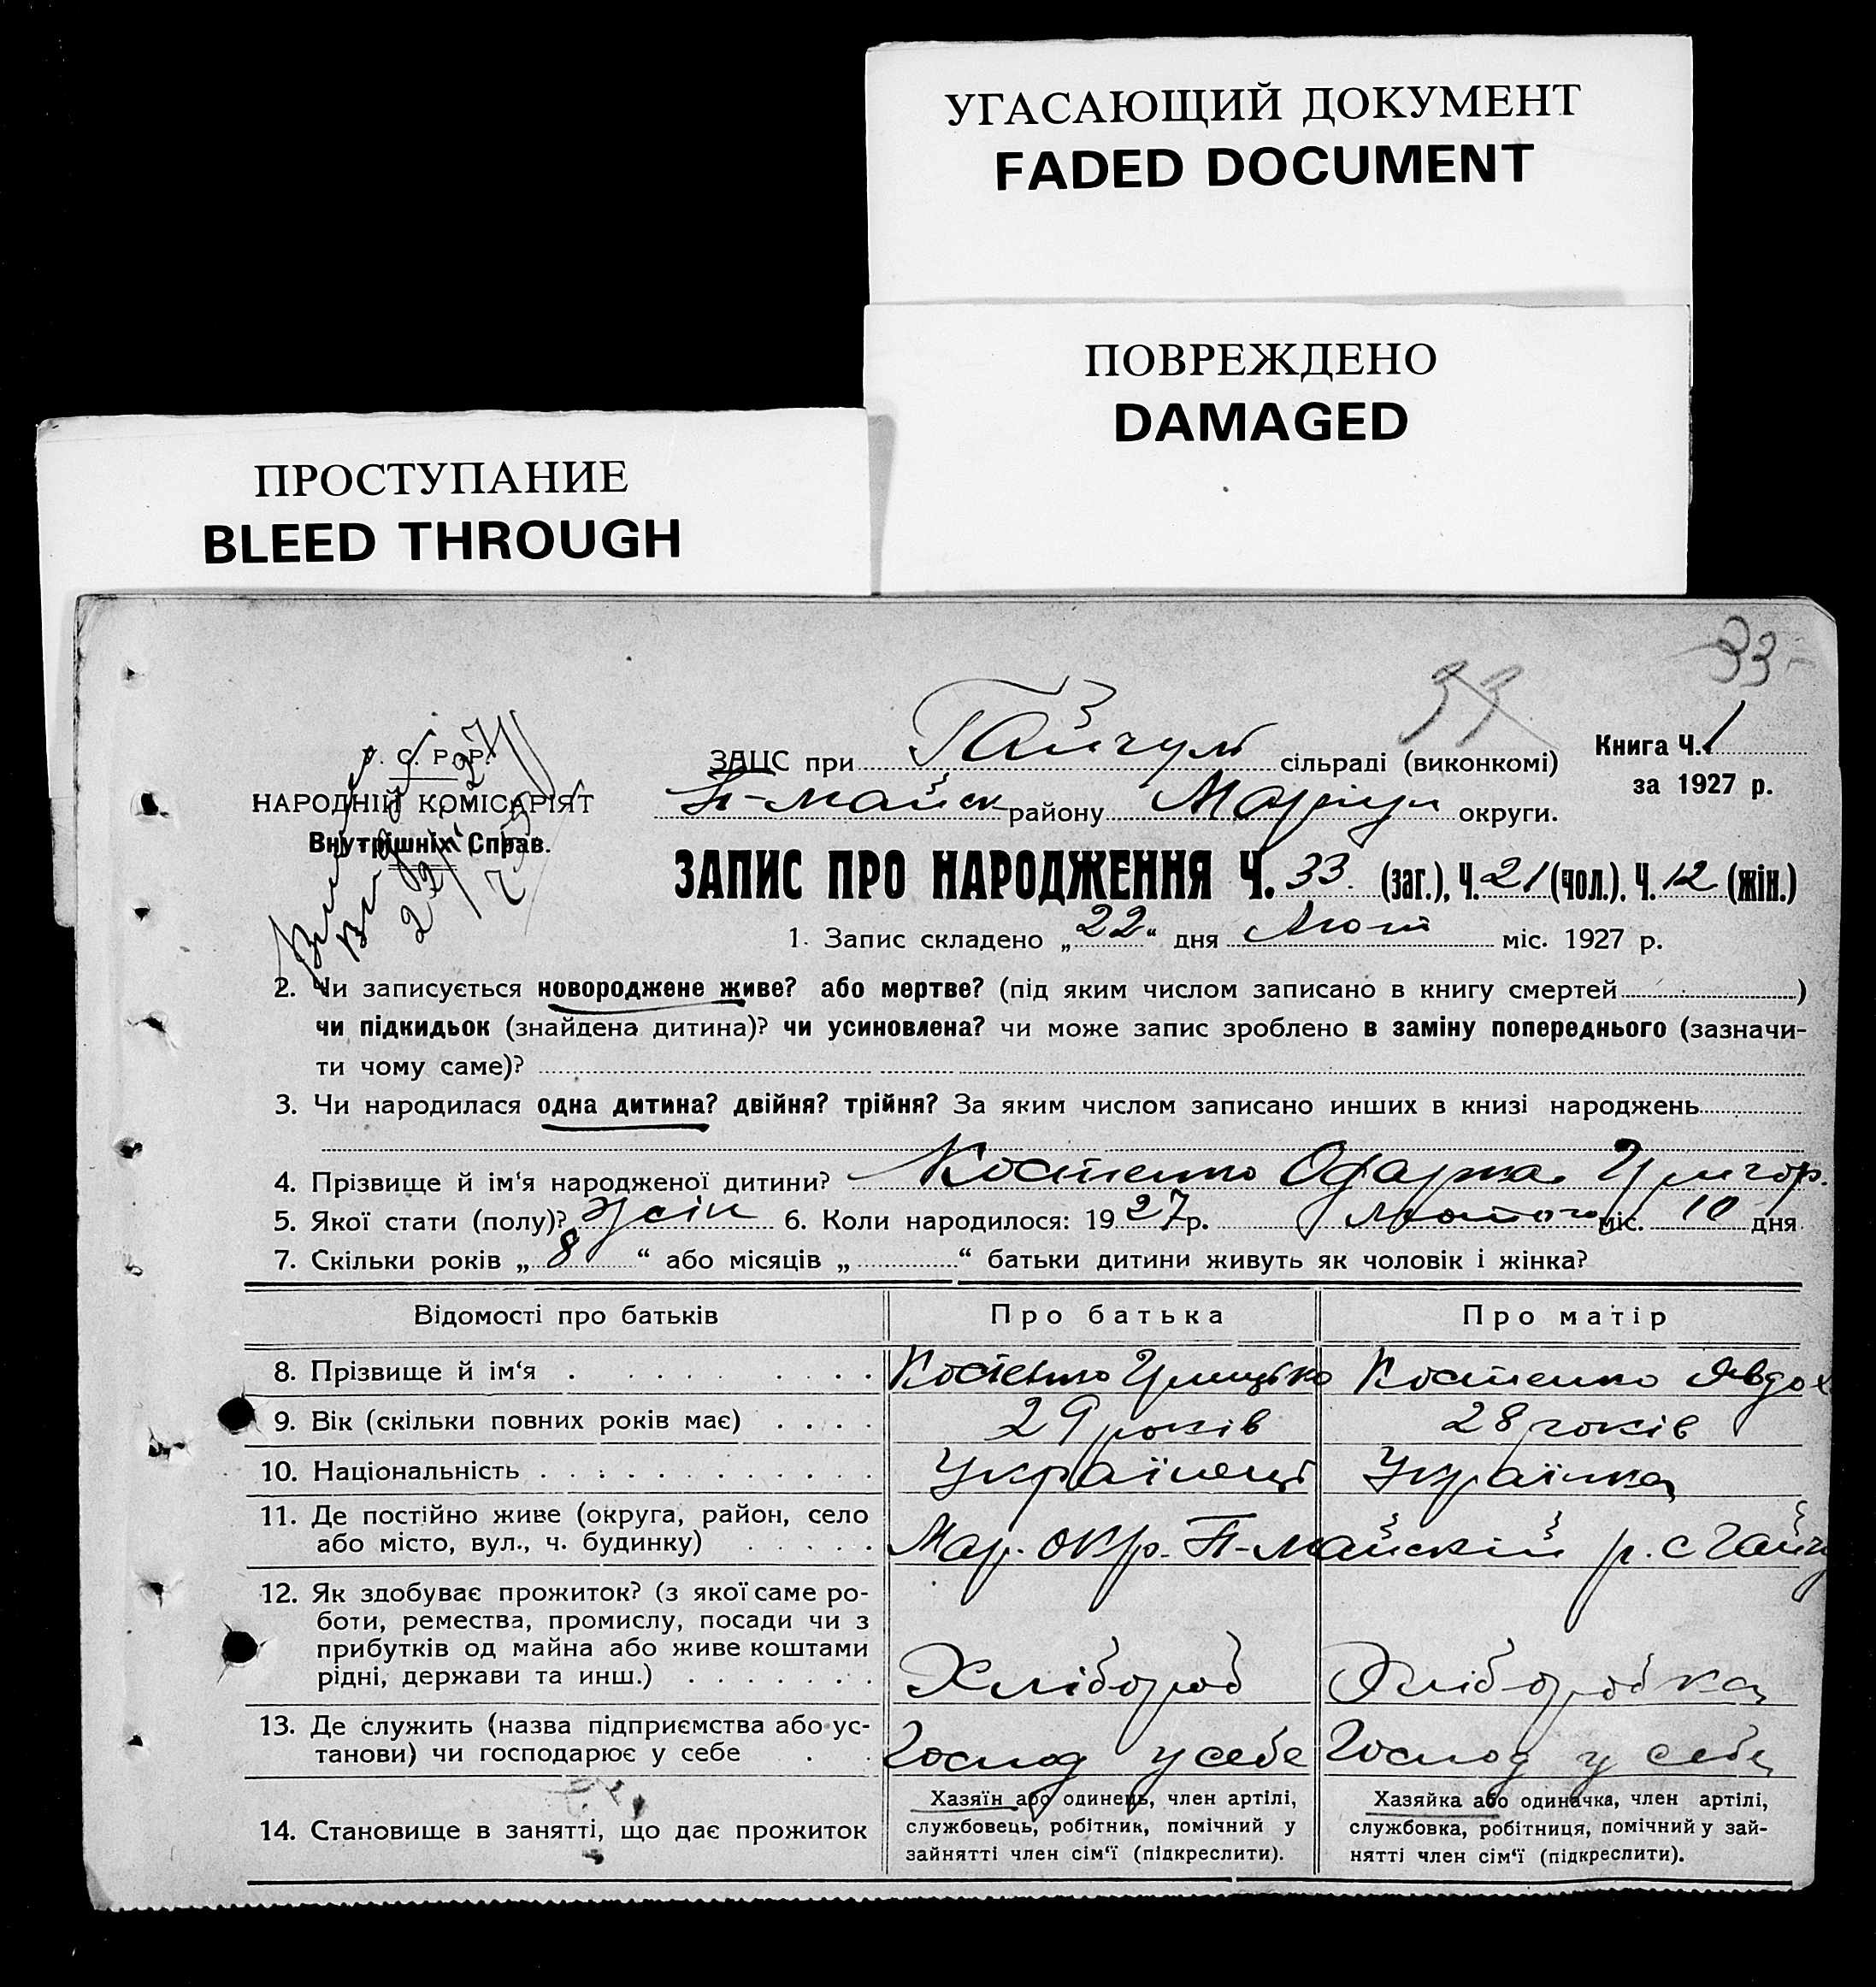 УГАСАЮЩИЙ ДОКУМЕНТ
FADED DOCUMENT
ПОВРЕЖДЕНО
DAMAGED
ПРОСТУПАНИЕ
BLEED THROUGH
33
33
У. С. Р. Р.
НАРОДНІЙ КОМІСАРІЯТ
Внутрішніх Справ.
ЗАЦС при Гайчул сільраді (виконкомі)
Книга Ч. 1
за 1927 р.
П-майск району Маріуп округи.
ЗАПИС ПРО НАРОДЖЕННЯ Ч. 33 (заг.), Ч. 21 (чол.), Ч. 12 (жін.)
1. Запис складено „22“ дня Лют міс. 1927 р.
2. Чи записується новороджене живе? або мертве? (під яким числом записано в книгу смертей)
чи підкидьок (знайдена дитина)? чи усиновлена? чи може запис зроблено в заміну попереднього (зазначи-
ти чому саме)?
3. Чи народилася одна дитина? двійня? трійня? За яким числом записано инших в книзі народжень
4. Прізвище й ім‘я народженої дитини? Костенко Одарка Григор.
5. Якої стати (полу)? жін 6. Коли народилося: 1927 р. Лютого міс. 10 дня
7. Скільки років „8“ або місяців „ “ батьки дитини живуть як чоловік і жінка?
Відомості про батьків Про батька Про матір
8. Прізвище й ім‘я Костенко Грицько Костенко Явдох
9. Вік (скільки повних років має) 29 років 28 років
10. Національність Українець Українка
11. Де постійно живе (округа, район, село
або місто, вул., ч. будинку) Мар. окр. П-майскій р. с Гайч
12. Як здобуває прожиток? (з якої саме ро-
боти, ремества, промислу, посади чи з
прибутків од майна або живе коштами
рідні, держави та инш.) Хлібороб Хліборобка
13. Де служить (назва підприємства або ус-
танови) чи господарює у себе Господ у себе Господ у себе
14. Становище в занятті, що дає прожиток
Хазяїн або одинець, член артілі,
службовець, робітник, помічний у
зайнятті член сім‘ї (підкреслити).
Хазяйка або одиначка, член артілі,
службовка, робітниця, помічний у зай-
нятті член сім‘ї (підкреслити).